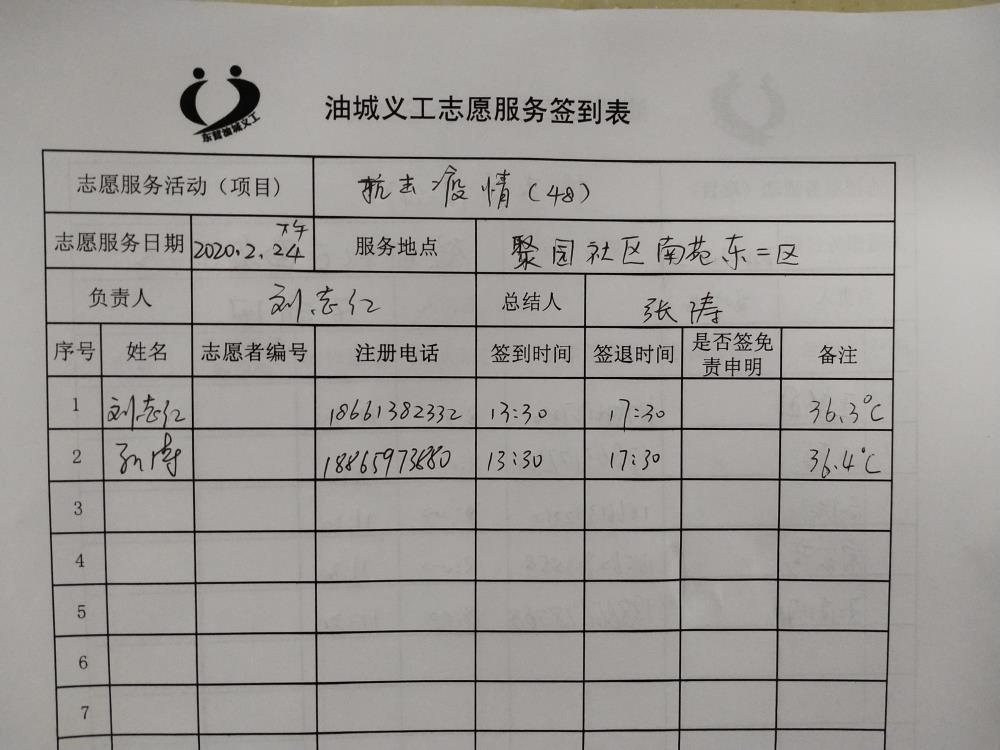 东营油城义工
油城义工志愿服务签到表
志愿服务活动（项目） 抗击疫情（48）
志愿服务日期 2020.2.24 下午 服务地点 聚园社区南苑东二区
负责人 刘志红 总结人 张涛
序号 姓名 志愿者编号 注册电话 签到时间 签退时间 是否签免责申明 备注
1 刘志红 18661382332 13:30 17:30 36.3℃
2 18865973880 13:30 17:30 36.4℃
3
4
5
6
7